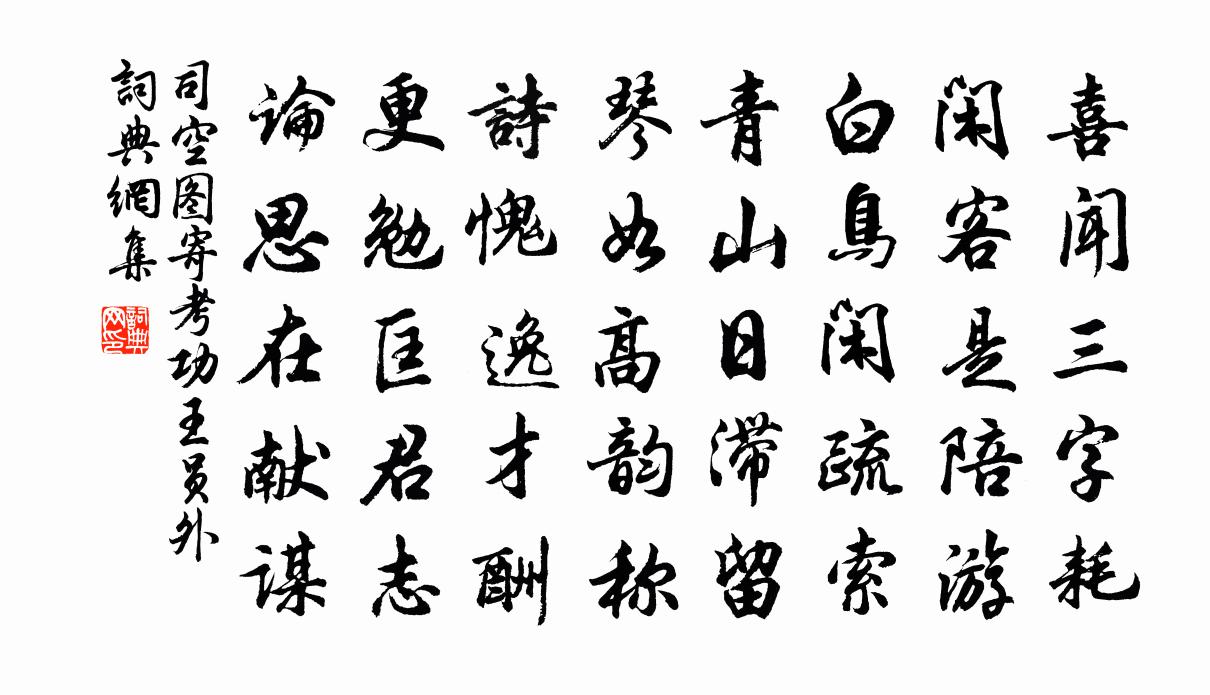 喜闻三字耗
闲客是陪游
白鳥闲疏索
青山日滞留
琴如高韵称
詩愧逸才酬
更勉匡君志
論思在献謀
司空图寄考功王员外
詞典網集
詞典
网印